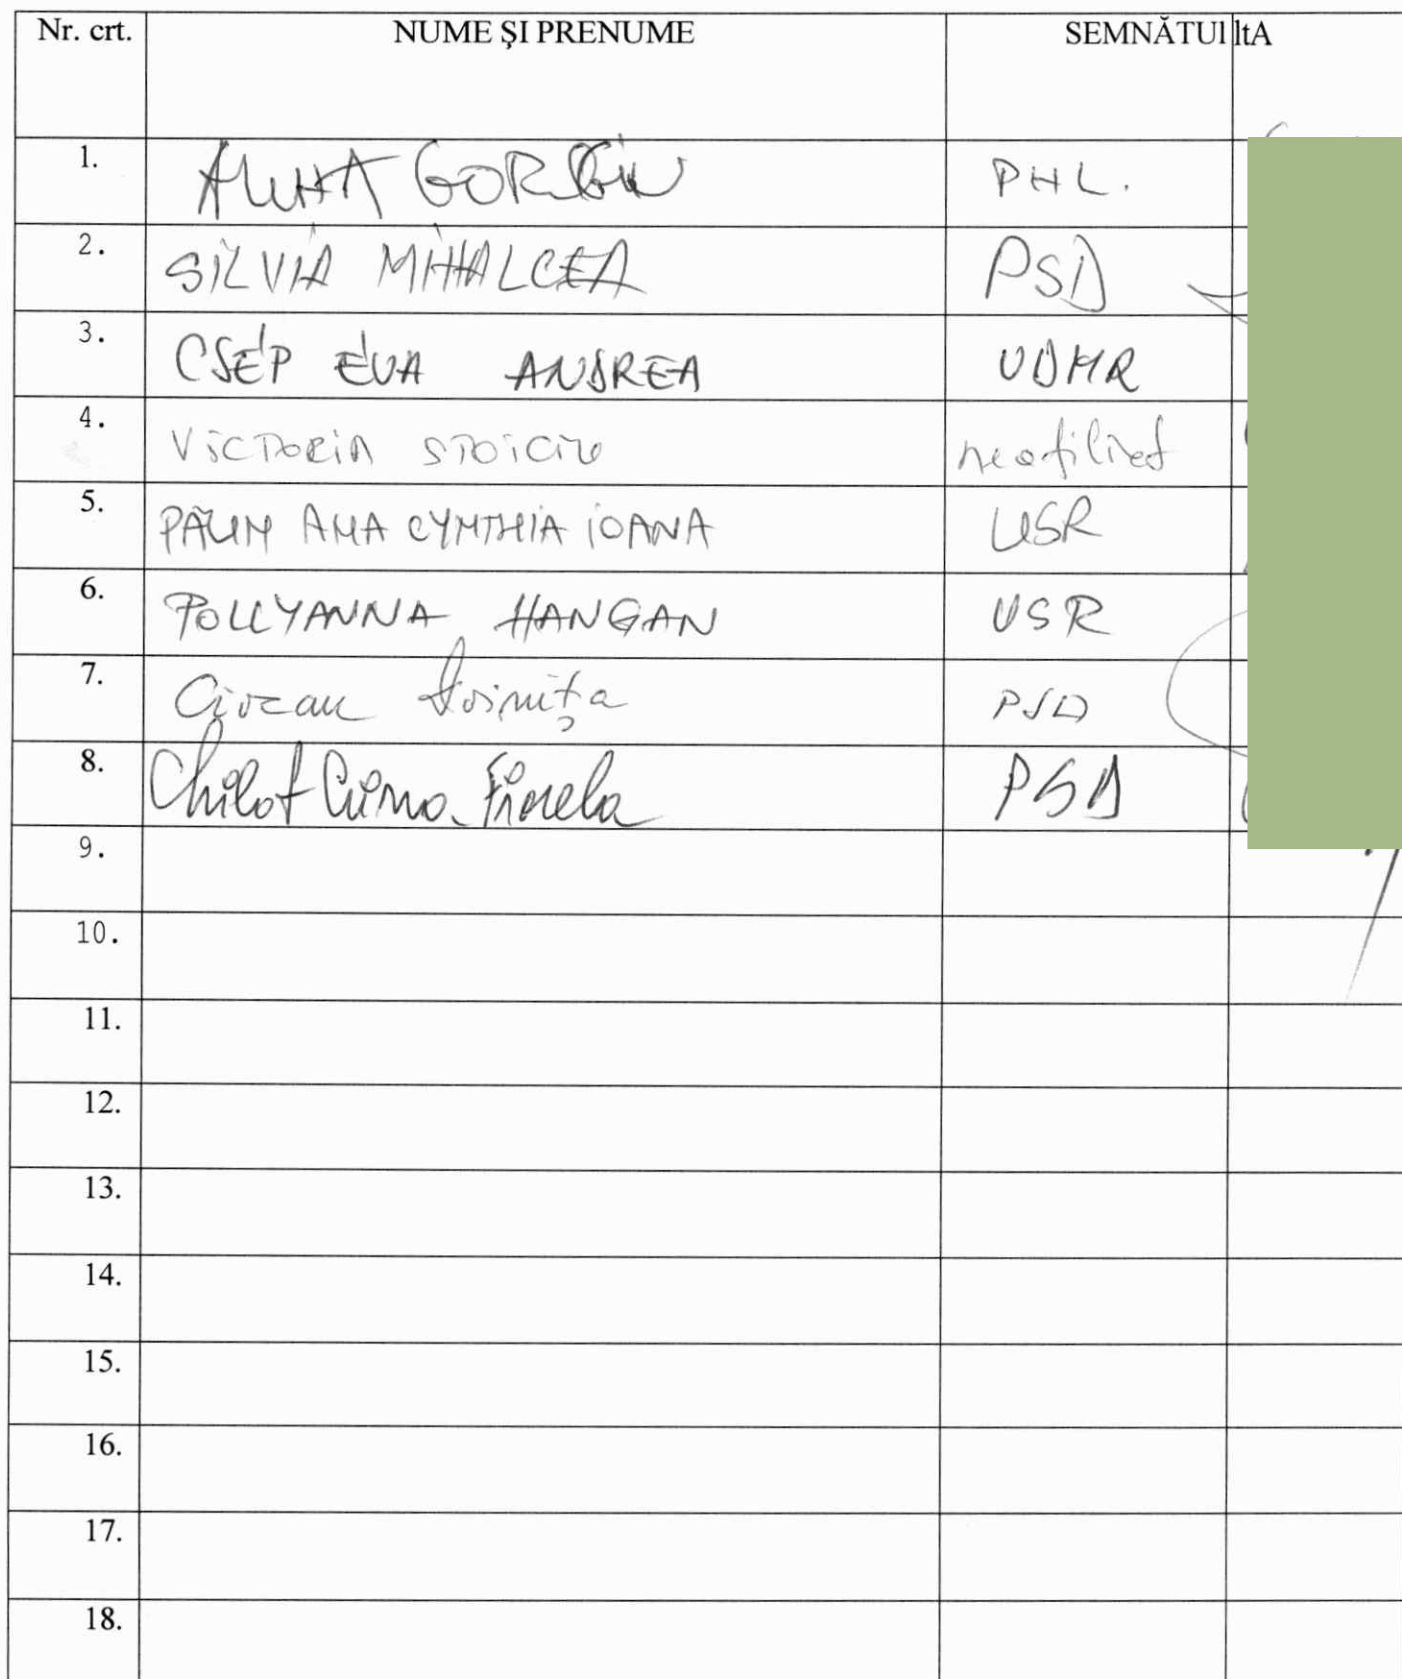 Nr. crt. NUME ŞI PRENUME SEMNĂTUI ltA
1. ALINA GORGHIU PNL.
2. SILVIA MIHALCEA PSD
3. CSÉP ÉVA ANDREA UDMR
4. VICTORIA STOICIU neafiliat
5. PĂUN ANA CYNTHIA IOANA USR
6. POLLYANNA HANGAN USR
7. Ciozau PSD
8. Chilat PSD
9.
10.
11.
12.
13.
14.
15.
16.
17.
18.